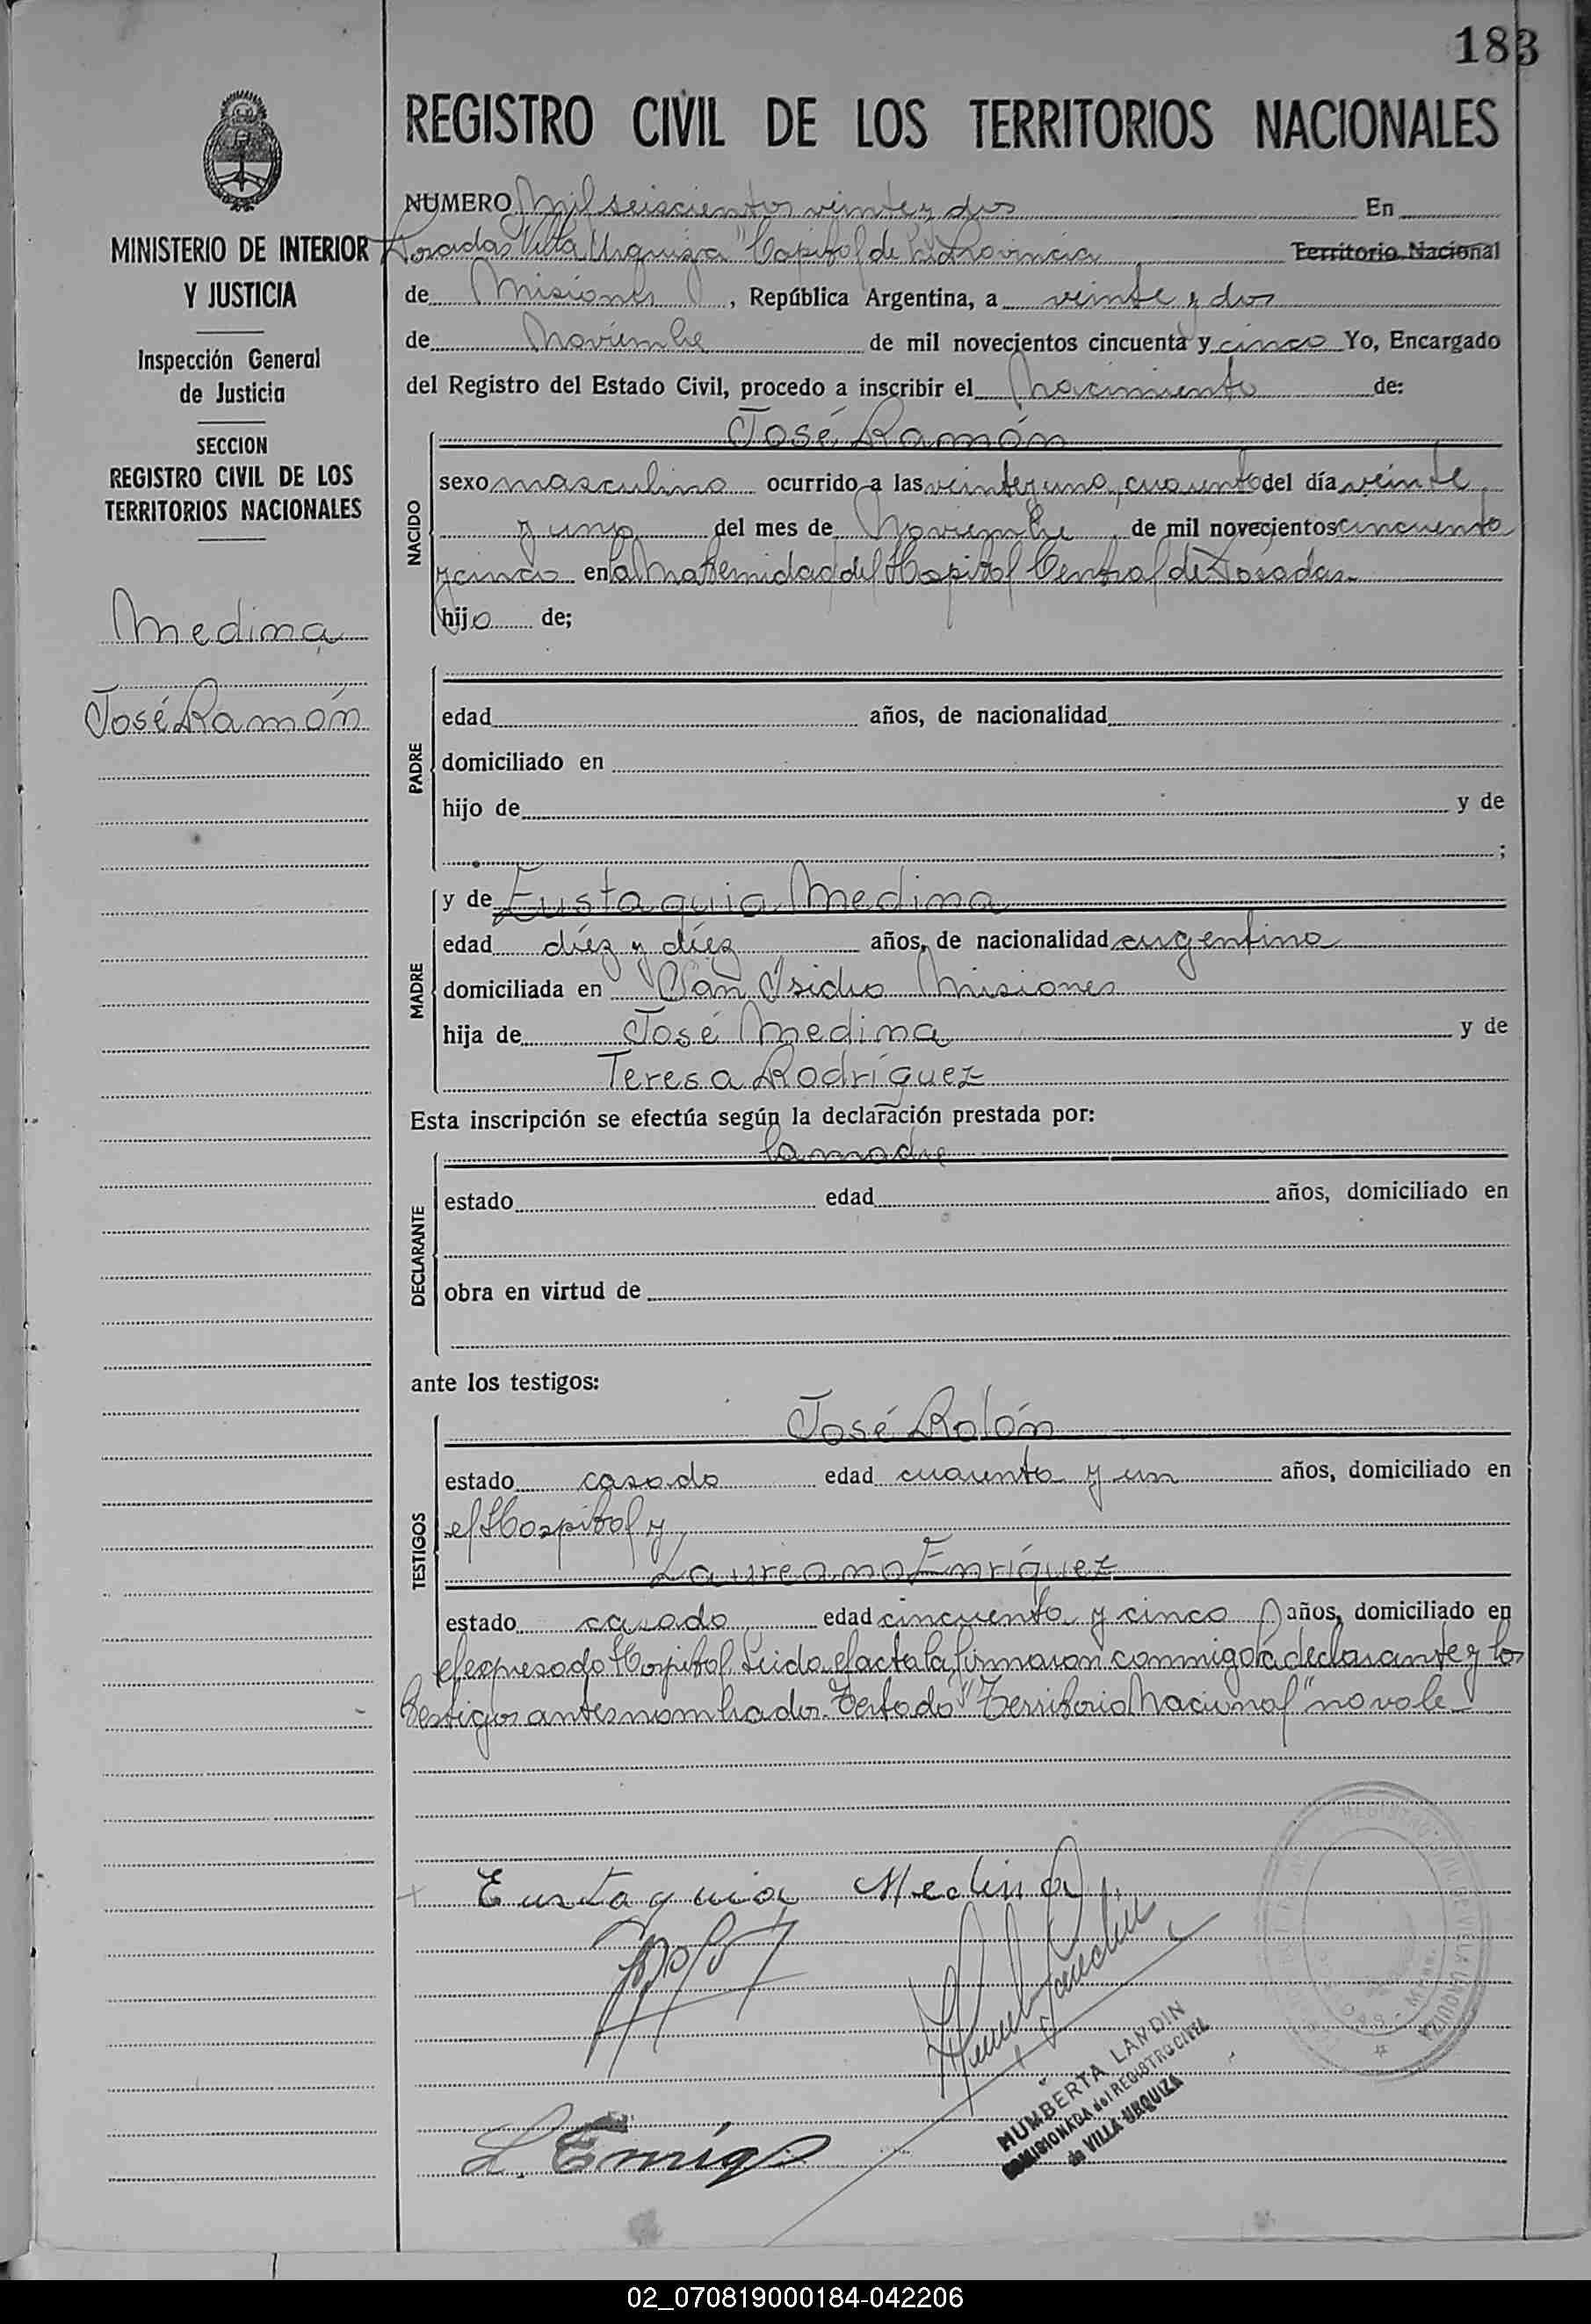 183
REGISTRO CIVIL DE LOS TERRITORIOS NACIONALES
MINISTERIO DE INTERIOR
Y JUSTICIA
Inspección General
de Justicia
SECCION
REGISTRO CIVIL DE LOS
TERRITORIOS NACIONALES
Medina
José Ramón
NUMERO Mil seiscientos veinte y dos En
Posadas Villa Urquiza "Capital de la Provincia Territorio Nacional
de Misiones, República Argentina, a veinte y dos
de Noviembre de mil novecientos cincuenta y cinco Yo, Encargado
del Registro del Estado Civil, procedo a inscribir el Nacimiento de:
José Ramón
NACIDO
sexo masculino ocurrido a las veinte y una, cuarenta del día veinte
y uno del mes de Noviembre de mil novecientos cincuenta
y cinco en la Maternidad del Hospital Central de Posadas
hijo de;
PADRE
edad años, de nacionalidad
domiciliado en
hijo de y de
;
MADRE
y de Eustaquia Medina
edad diéz y diéz años, de nacionalidad argentina
domiciliada en San Isidro Misiones
hija de José Medina y de
Teresa Rodríguez
Esta inscripción se efectúa según la declaración prestada por:
la madre
DECLARANTE
estado edad años, domiciliado en
obra en virtud de
ante los testigos:
TESTIGOS
José Rolón
estado casado edad cuarenta y un años, domiciliado en
el Hospital y
Laureano Enríquez
estado casado edad cincuenta y cinco años, domiciliado en
el expresado Hospital. Leida el acta la firmaron conmigo la declarante y los
testigos antes nombrados. Testado "Territorio Nacional" no vale
Eustaquia Medina
L. Enriq
HUMBERTA LANDIN
COMISIONADA del REGISTRO CIVIL
de VILLA URQUIZA
02_070819000184-042206